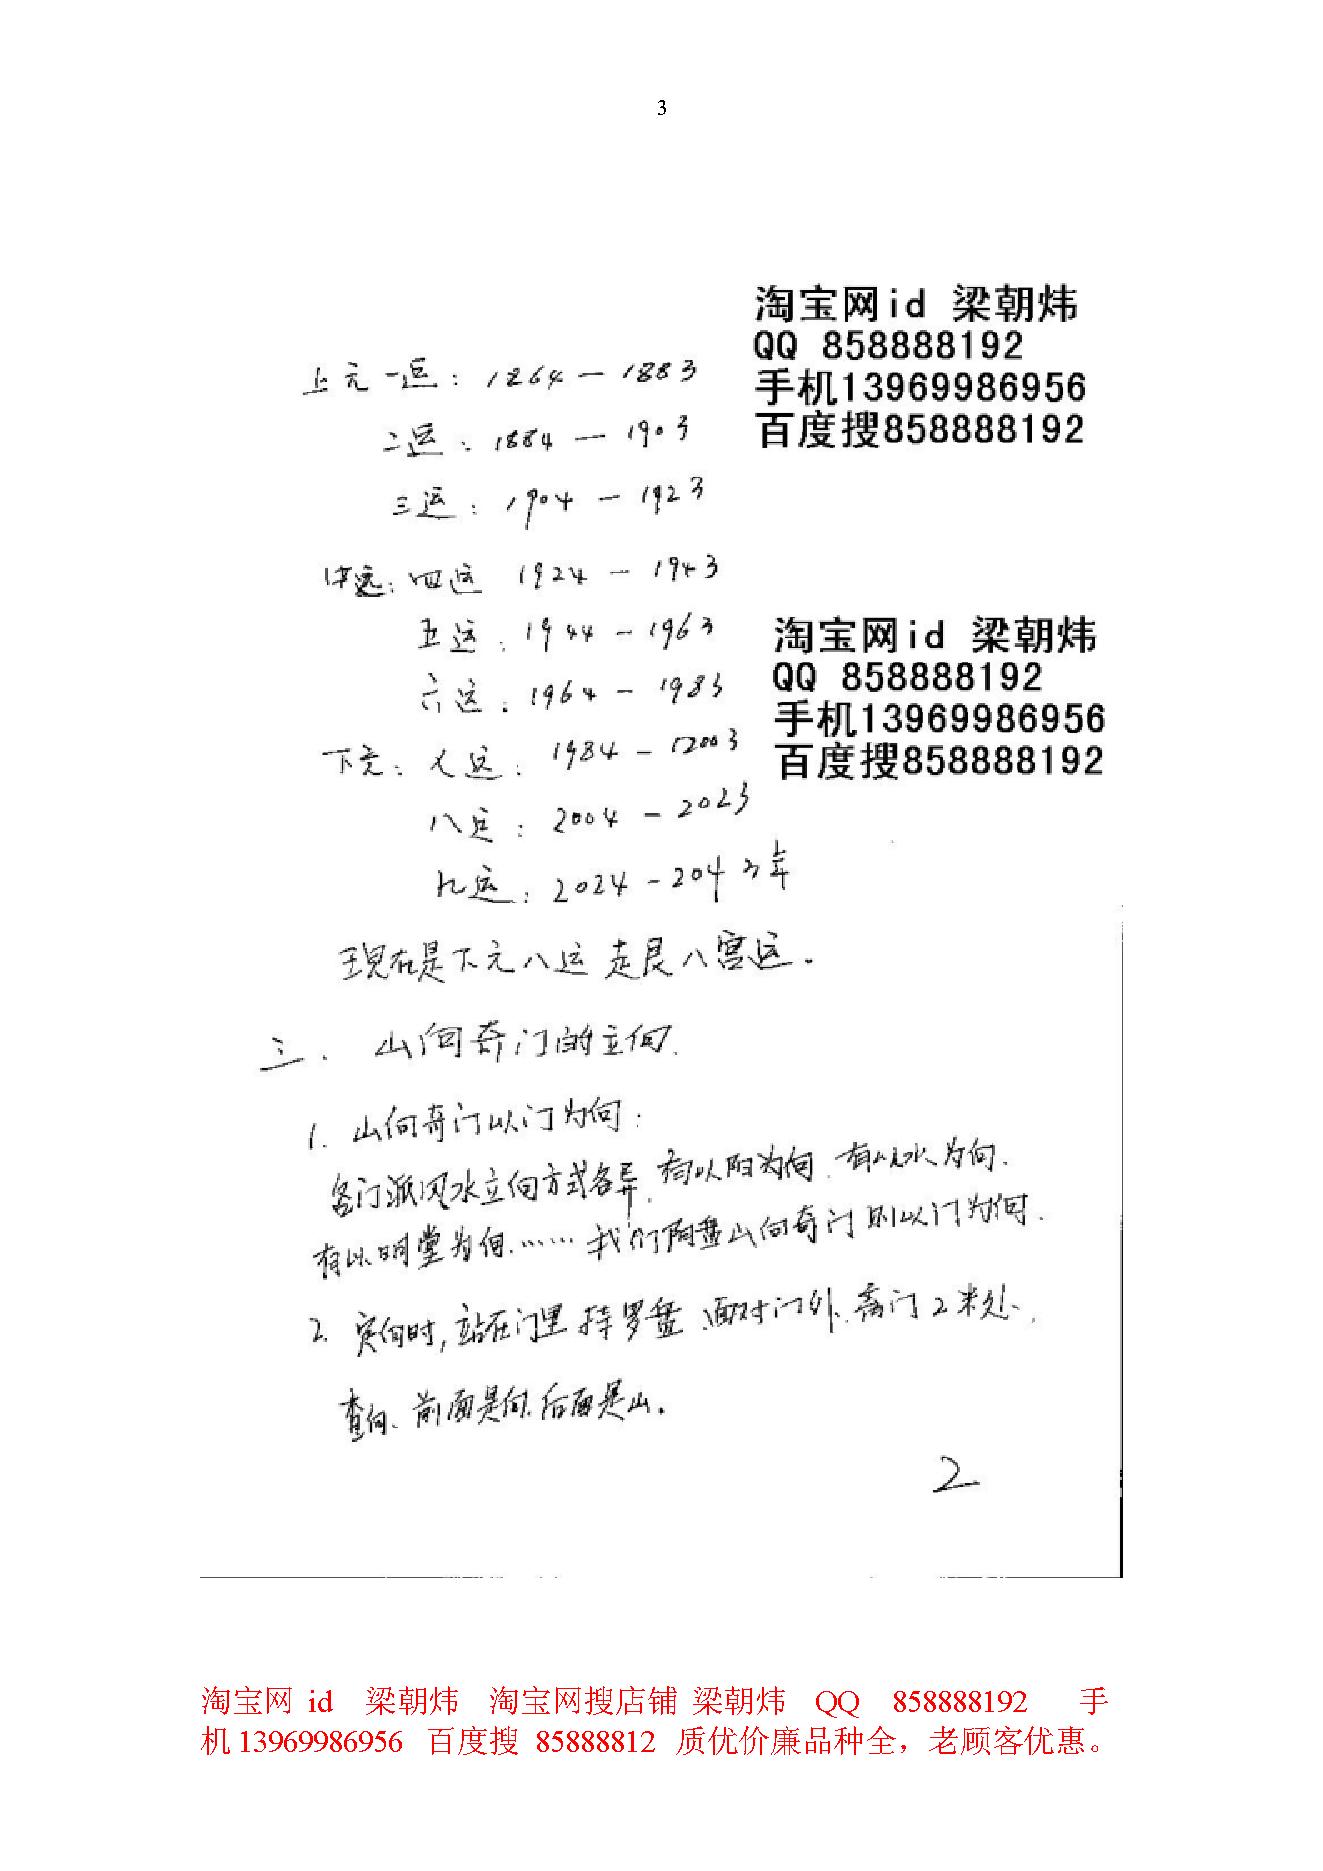 3
淘宝网id 梁朝炜
QQ 858888192
手机13969986956
百度搜858888192
上元一运：1864－1883
二运：1884－1903
三运：1904－1923
中元：四运 1924－1943
五运：1944－1963
六运：1964－1983
淘宝网id 梁朝炜
QQ 858888192
手机13969986956
百度搜858888192
下元：七运：1984－2003
八运：2004－2023
九运：2024－2043年
现在是下元八运 走艮八宫运．
三．山向奇门的立向．
1．山向奇门以门为向：
各门派风水立向方式各异，有以阳为向．有以水为向．
有以明堂为向……我们阴盘山向奇门则以门为向．
2．定向时，站在门里 持罗盘、面对门外、离门2米处、
查向、前面是向．后面是山．
2
淘宝网 id 梁朝炜 淘宝网搜店铺 梁朝炜 QQ 858888192 手
机 13969986956 百度搜 85888812 质优价廉品种全，老顾客优惠。